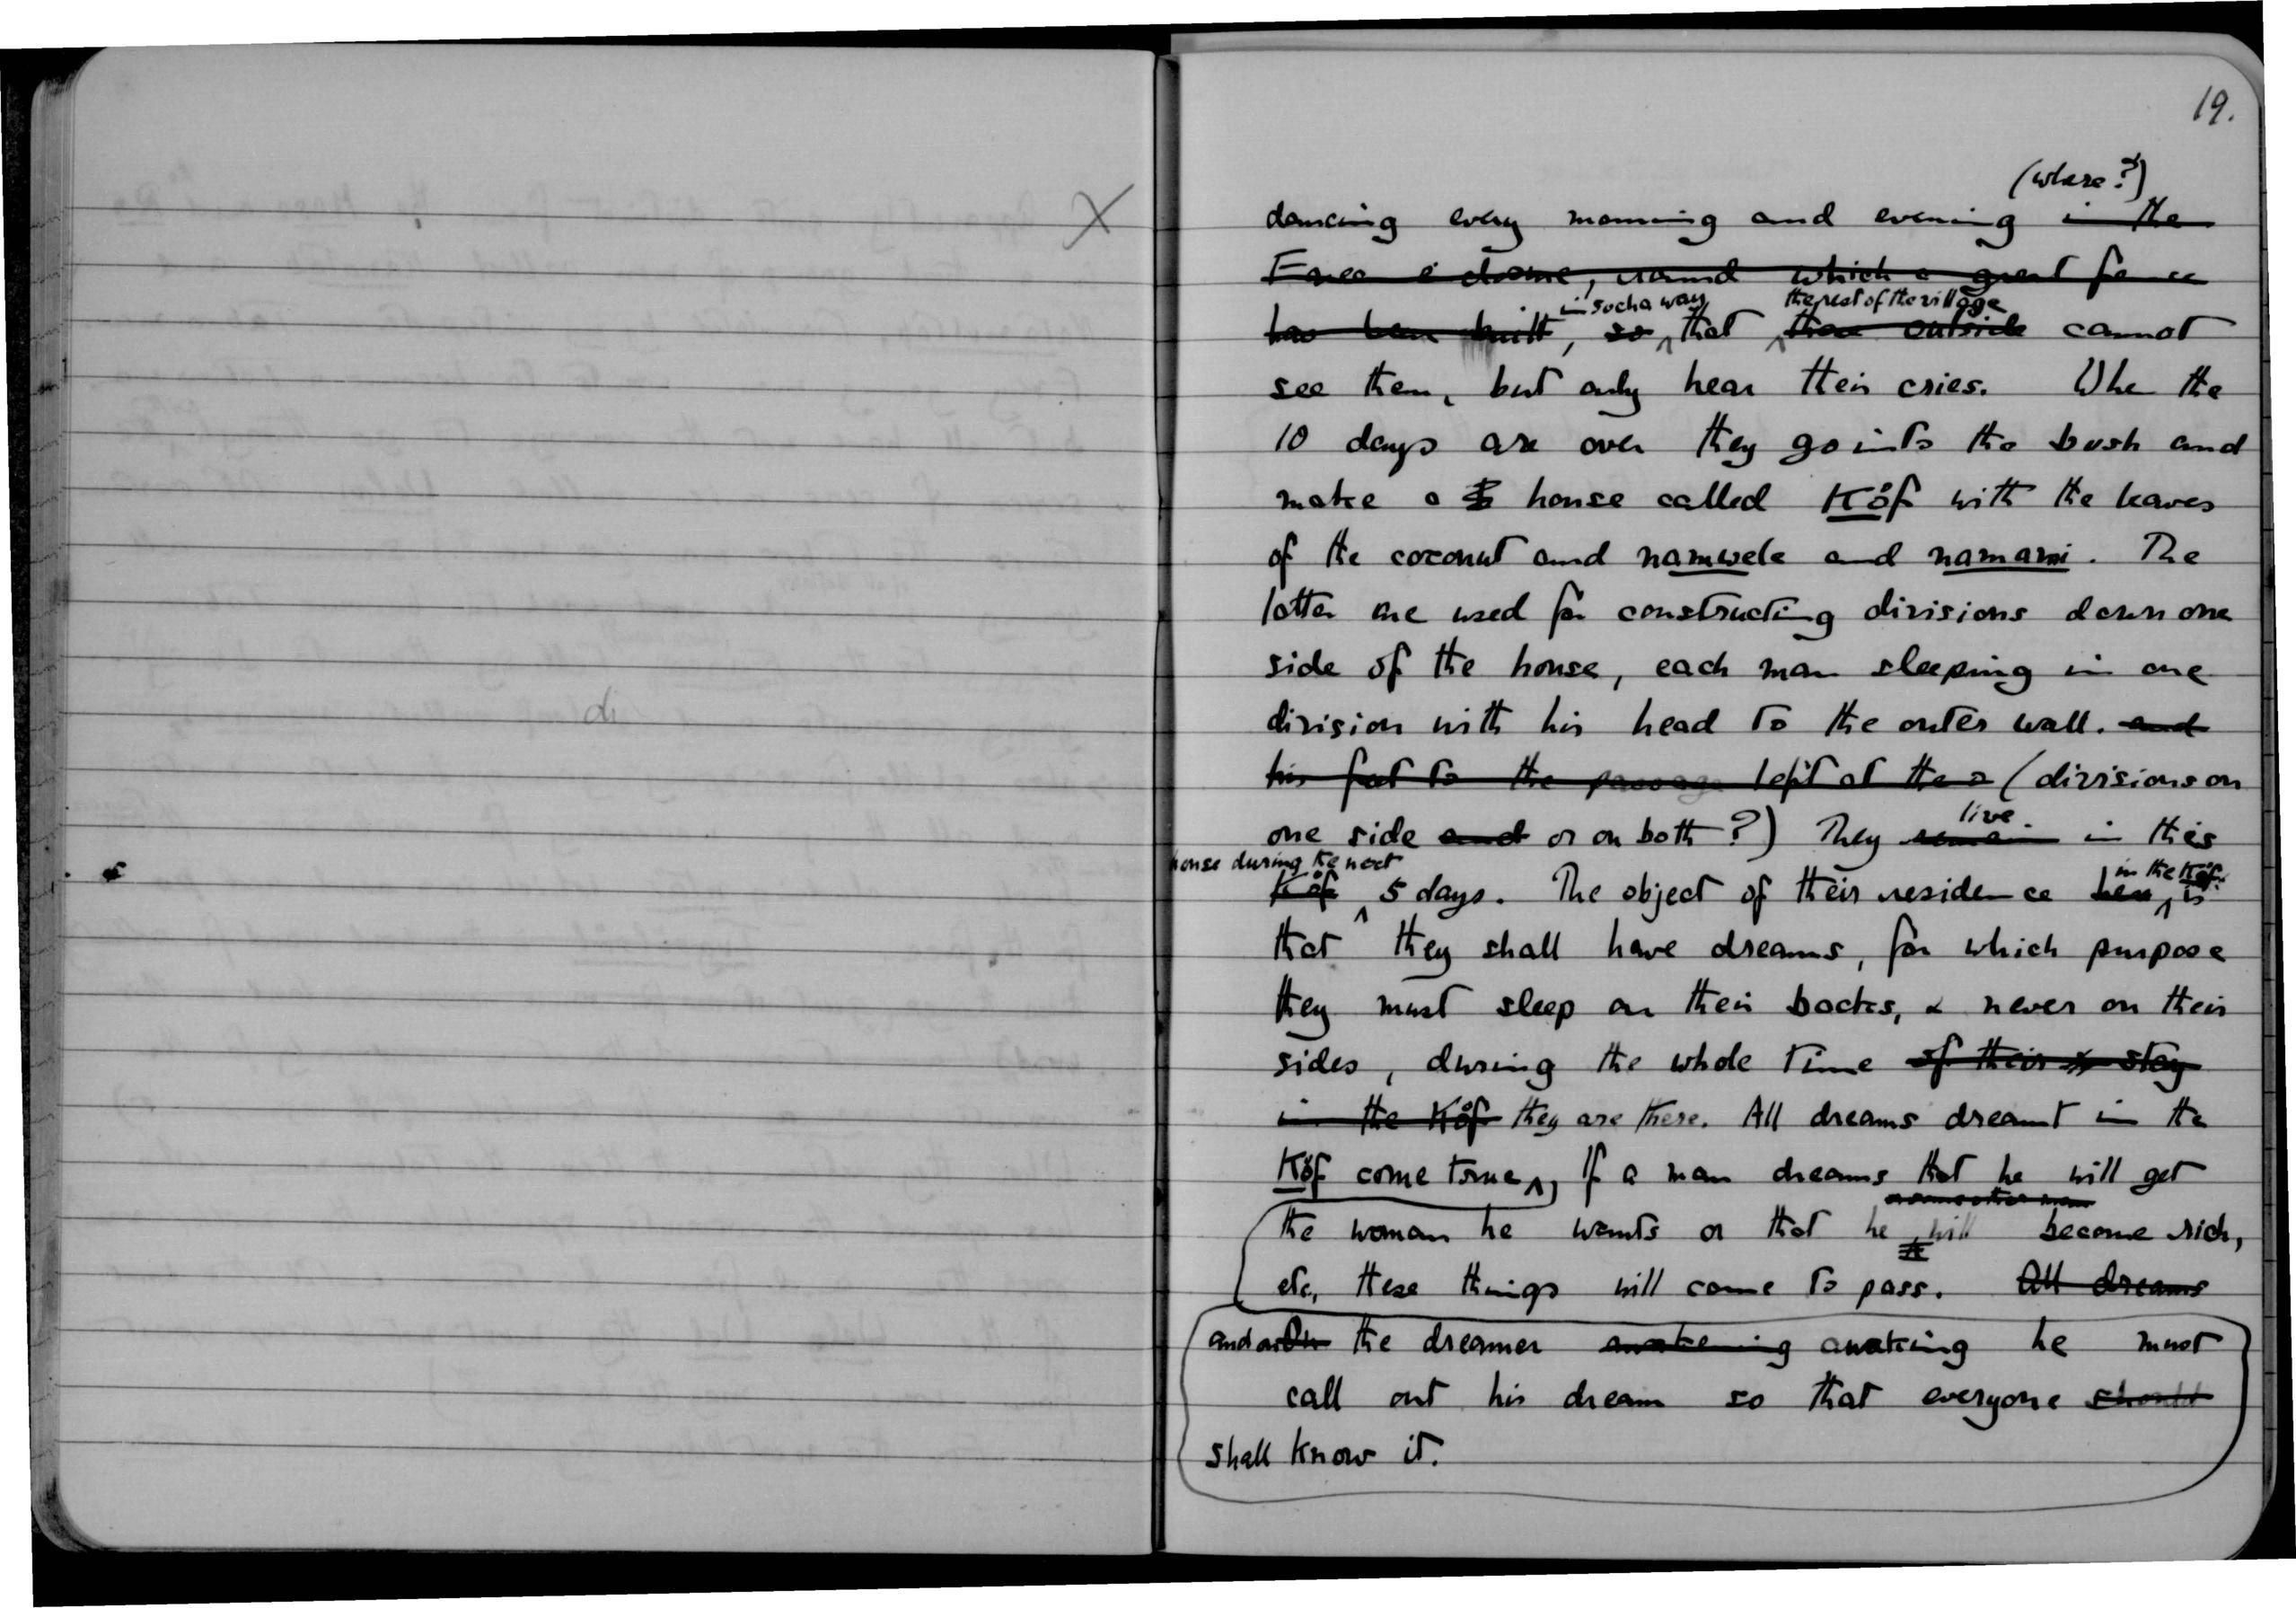 X
di
19.
(where?)
dancing every morning and evening in the
round which a great fence
in such a way the rest of the village
has been built, so that those outside cannot
see them, but only hear their cries. Whe the
10 days are over they go into the bush and
make a house called Köf with the leaves
of the coconut and namwele and namami. The
latter are used for constructing divisions down one
side of the house, each man sleeping in one
division with his head to the outer wall. and
his feet to the passage left at the (divisions on
live
one side and or on both?) They remain in this
house during the next in the Köf
Köf 5 days. The object of their residence here is
that they shall have dreams, for which purpose
they must sleep on their backs, & never on their
sides, during the whole time of their stay
in the Köf they are there. All dreams dreamt in the
Köf come true, If a man dreams that he will get
or some other man
the woman he wants or that he will become rich,
etc, these things will come to pass. All dreams
and on On the dreamer awakening awaking he must
call out his dream so that everyone should
shall know it.